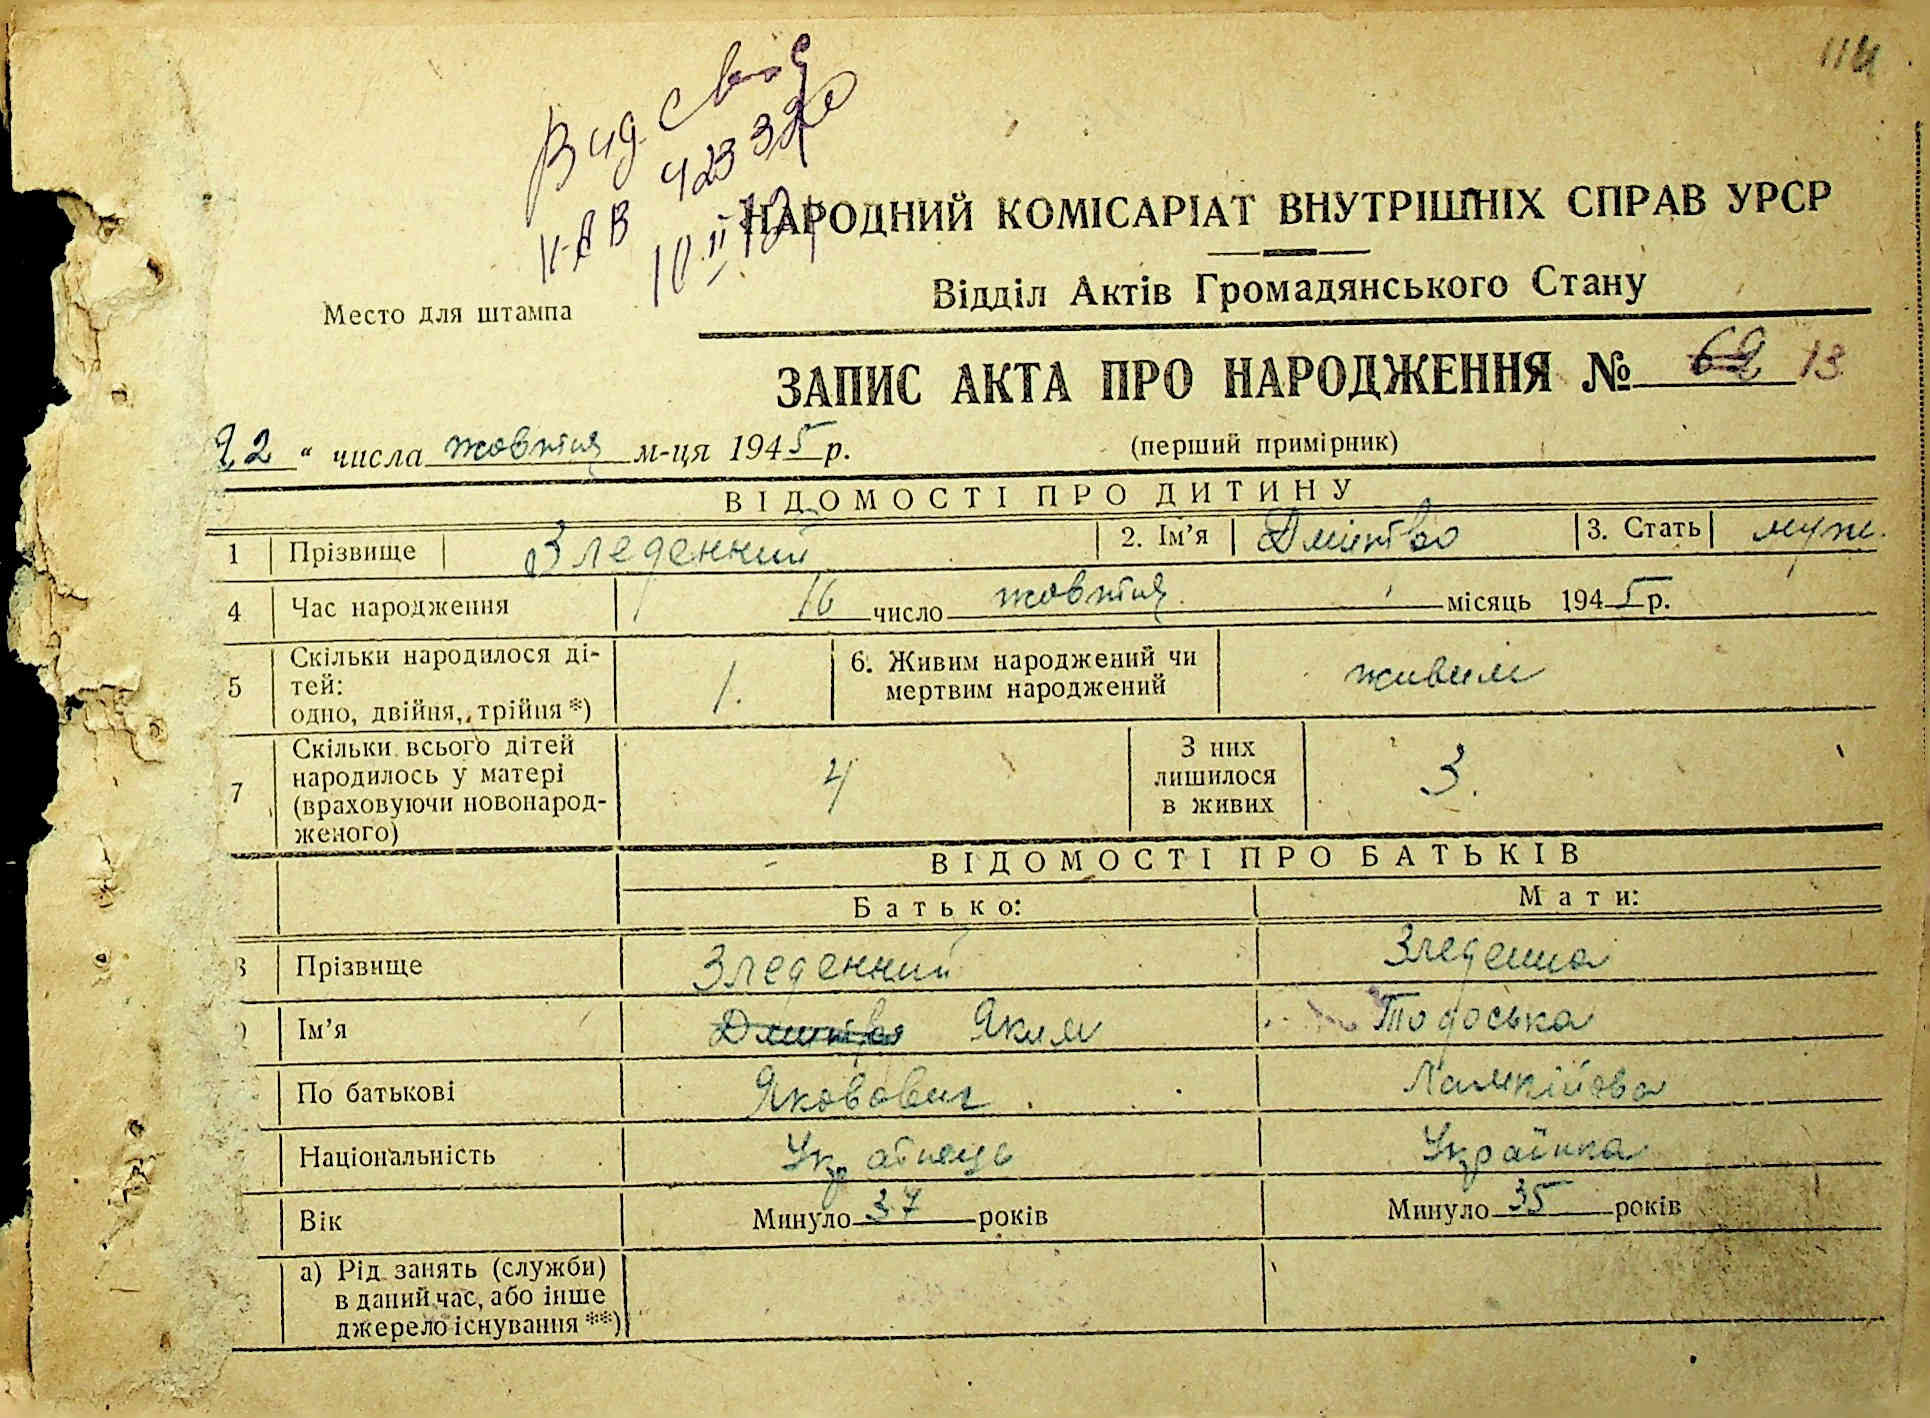 114
Вид. свід
423320
НАРОДНИЙ КОМІСАРІАТ ВНУТРІШНІХ СПРАВ УРСР
Відділ Актів Громадянського Стану
Место для штампа
ЗАПИС АКТА ПРО НАРОДЖЕННЯ № 62 13
22 " числа жовтня м-ця 1945 р. (перший примірник)
ВІДОМОСТІ ПРО ДИТИНУ
1 Прізвище Зледенний 2. Ім'я Дмитво 3. Стать муж.
4 Час народження 16 число жовтня місяць 1945 р.
5 Скільки народилося ді-
тей:
одно, двійня, трійня *) 1. 6. Живим народжений чи
мертвим народжений живим
7 Скільки всього дітей
народилось у матері
(враховуючи новонарод-
женого) 4 З них
лишилося
в живих 3.
ВІДОМОСТІ ПРО БАТЬКІВ
Батько: Мати:
Прізвище Зледенний Зледенна
Ім'я Яким Тодоська
По батькові Якович
Національність Українець Українка
Вік Минуло 37 років Минуло 35 років
а) Рід занять (служби)
в даний час, або інше
джерело існування **)